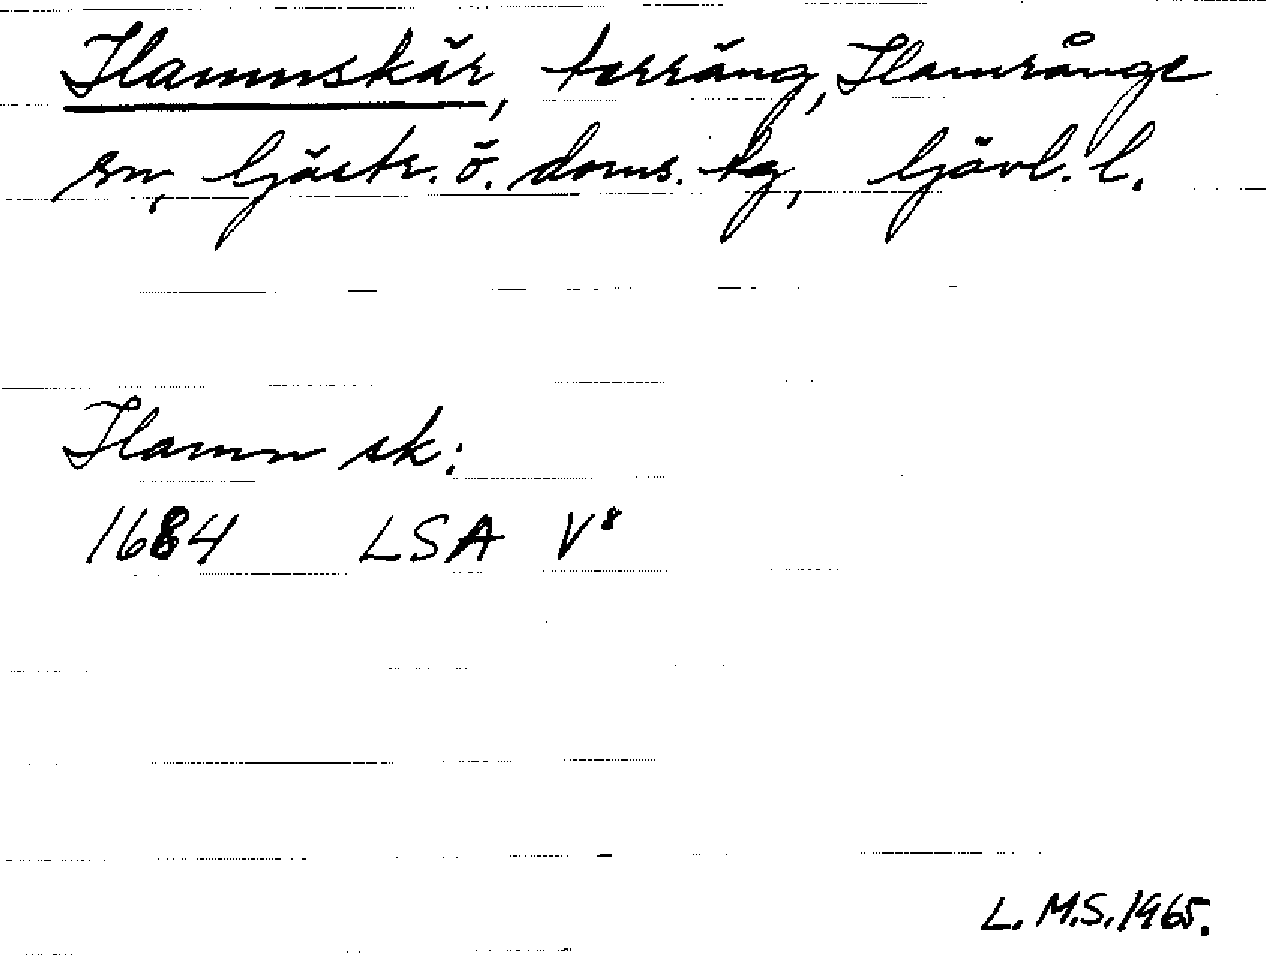 Hamnskär, terräng, Hamrånge
sn, Gästr. ö. doms. tg, Gävl. l.
Hamn sk:
1684 LSA V⁸
L. M.S. 1965.